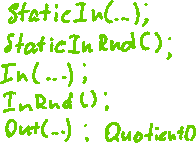 StaticIn(...);
StaticInRnd();
In(...);
InRnd();
Out(...); Quotient()